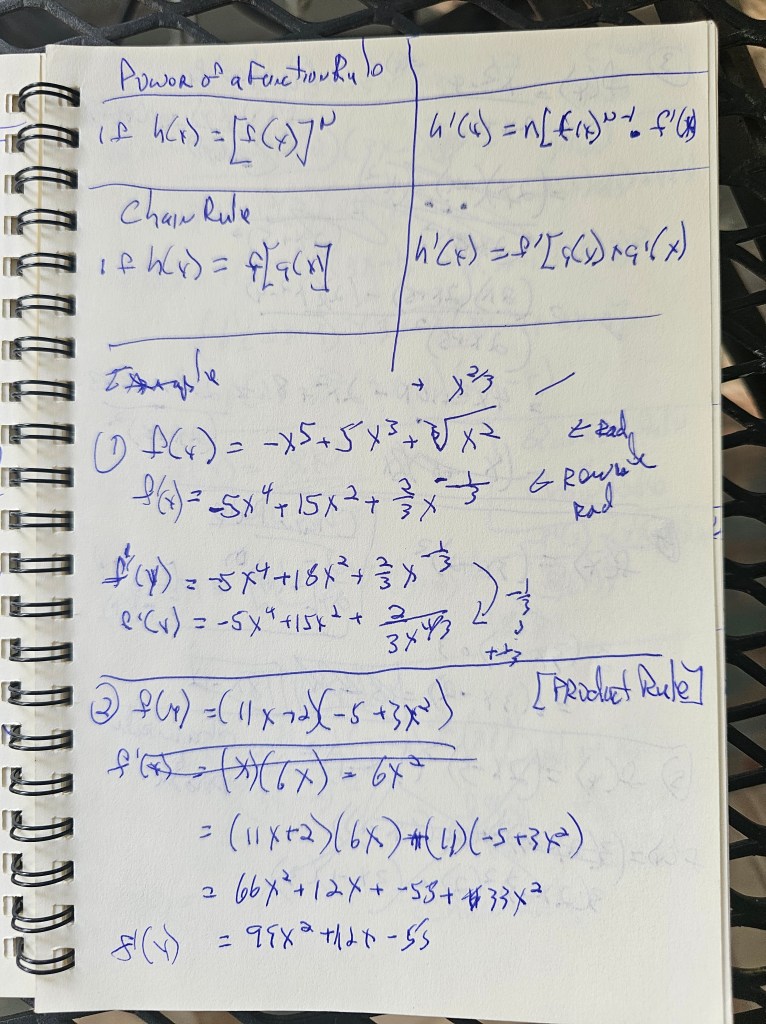 Power of a Function Rule
if h(x) = [f(x)]^n    h'(x) = n[f(x)^n-1 · f'(x)
Chain Rule
if h(x) = f[g(x)]    h'(x) = f'[g(x) × g'(x)
Example → x^2/3
① f(x) = -x^5 + 5x^3 + ∛x^2 ← Rad
f'(x) = -5x^4 + 15x^2 + 2/3 x^-1/3 ← Rewrite
Rad
f'(x) = -5x^4 + 18x^2 + 2/3 x^-1/3
f'(x) = -5x^4 + 15x^2 + 2/3x^1/3
-1/3
+1/3
② f(x) = (11x+2)(-5+3x^2) [Product Rule]
f'(x) = (x)(6x) = 6x^2
= (11x+2)(6x) + (11)(-5+3x^2)
= 66x^2 + 12x + -55 + 33x^2
f'(x) = 99x^2 + 12x - 55